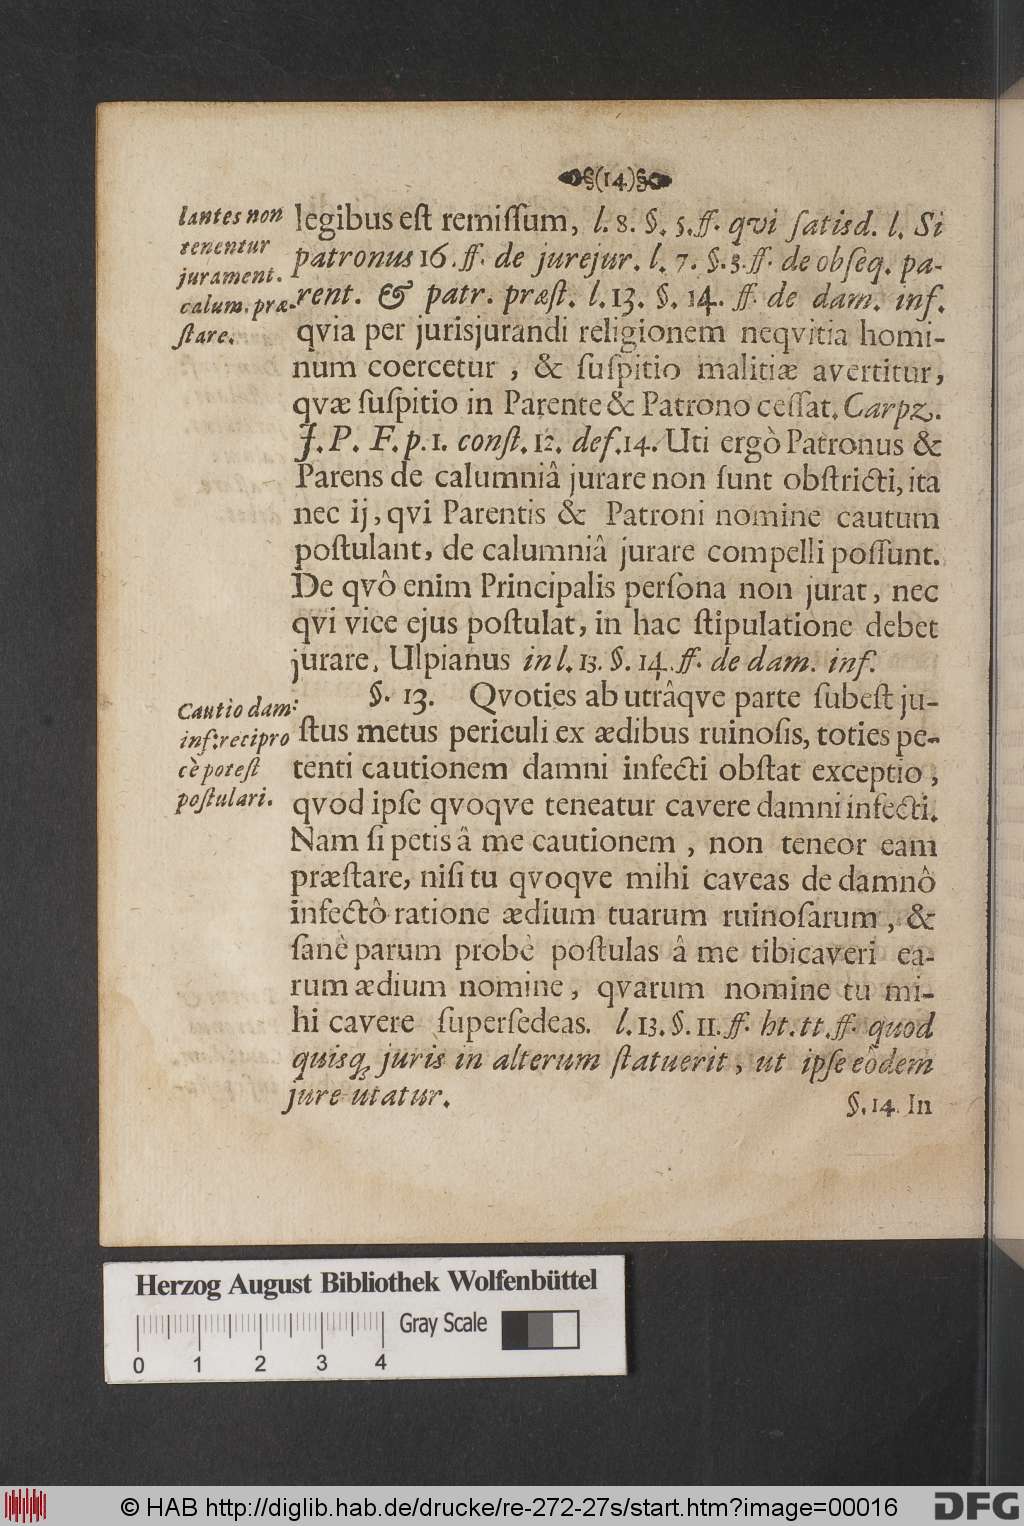 (14)
lantes non
tenentur
jurament.
calum. præ-
ſtare.
legibus eſt remiſſum, l. 8. §. 5. ff. qvi ſatisd. l. Si
patronus 16. ff. de jurejur. l. 7. §. 3. ff. de obſeq. pa-
rent. & patr. præſt. l. 13. §. 14. ff. de dam. inf.
qvia per jurisjurandi religionem neqvitia homi-
num coercetur , & ſuſpitio malitiæ avertitur,
qvæ ſuſpitio in Parente & Patrono ceſſat. Carpz.
J. P. F. p. 1. conſt. 12. def. 14. Uti ergò Patronus &
Parens de calumniâ jurare non ſunt obſtricti, ita
nec ij, qvi Parentis & Patroni nomine cautum
poſtulant, de calumniâ jurare compelli poſſunt.
De qvô enim Principalis perſona non jurat, nec
qvi vice ejus poſtulat, in hac ſtipulatione debet
jurare. Ulpianus in l. 13. §. 14. ff. de dam. inf.
Cautio dam:
inf: recipro
cè poteſt
poſtulari.
§. 13. Qvoties ab utrâqve parte ſubeſt ju-
ſtus metus periculi ex ædibus ruinoſis, toties pe-
tenti cautionem damni infecti obſtat exceptio ,
qvod ipſe qvoqve teneatur cavere damni infecti.
Nam ſi petis â me cautionem , non teneor eam
præſtare, niſi tu qvoqve mihi caveas de damnô
infectô ratione ædium tuarum ruinoſarum , &
ſanè parum probè poſtulas â me tibi caveri ea-
rum ædium nomine, qvarum nomine tu mi-
hi cavere ſuperſedeas. l. 13. §. 11. ff. ht. tt. ff. quod
quisq; juris in alterum ſtatuerit, ut ipſe eôdem
jure utatur.
§. 14. In
Herzog August Bibliothek Wolfenbüttel
Gray Scale
0 1 2 3 4
© HAB http://diglib.hab.de/drucke/re-272-27s/start.htm?image=00016
DFG